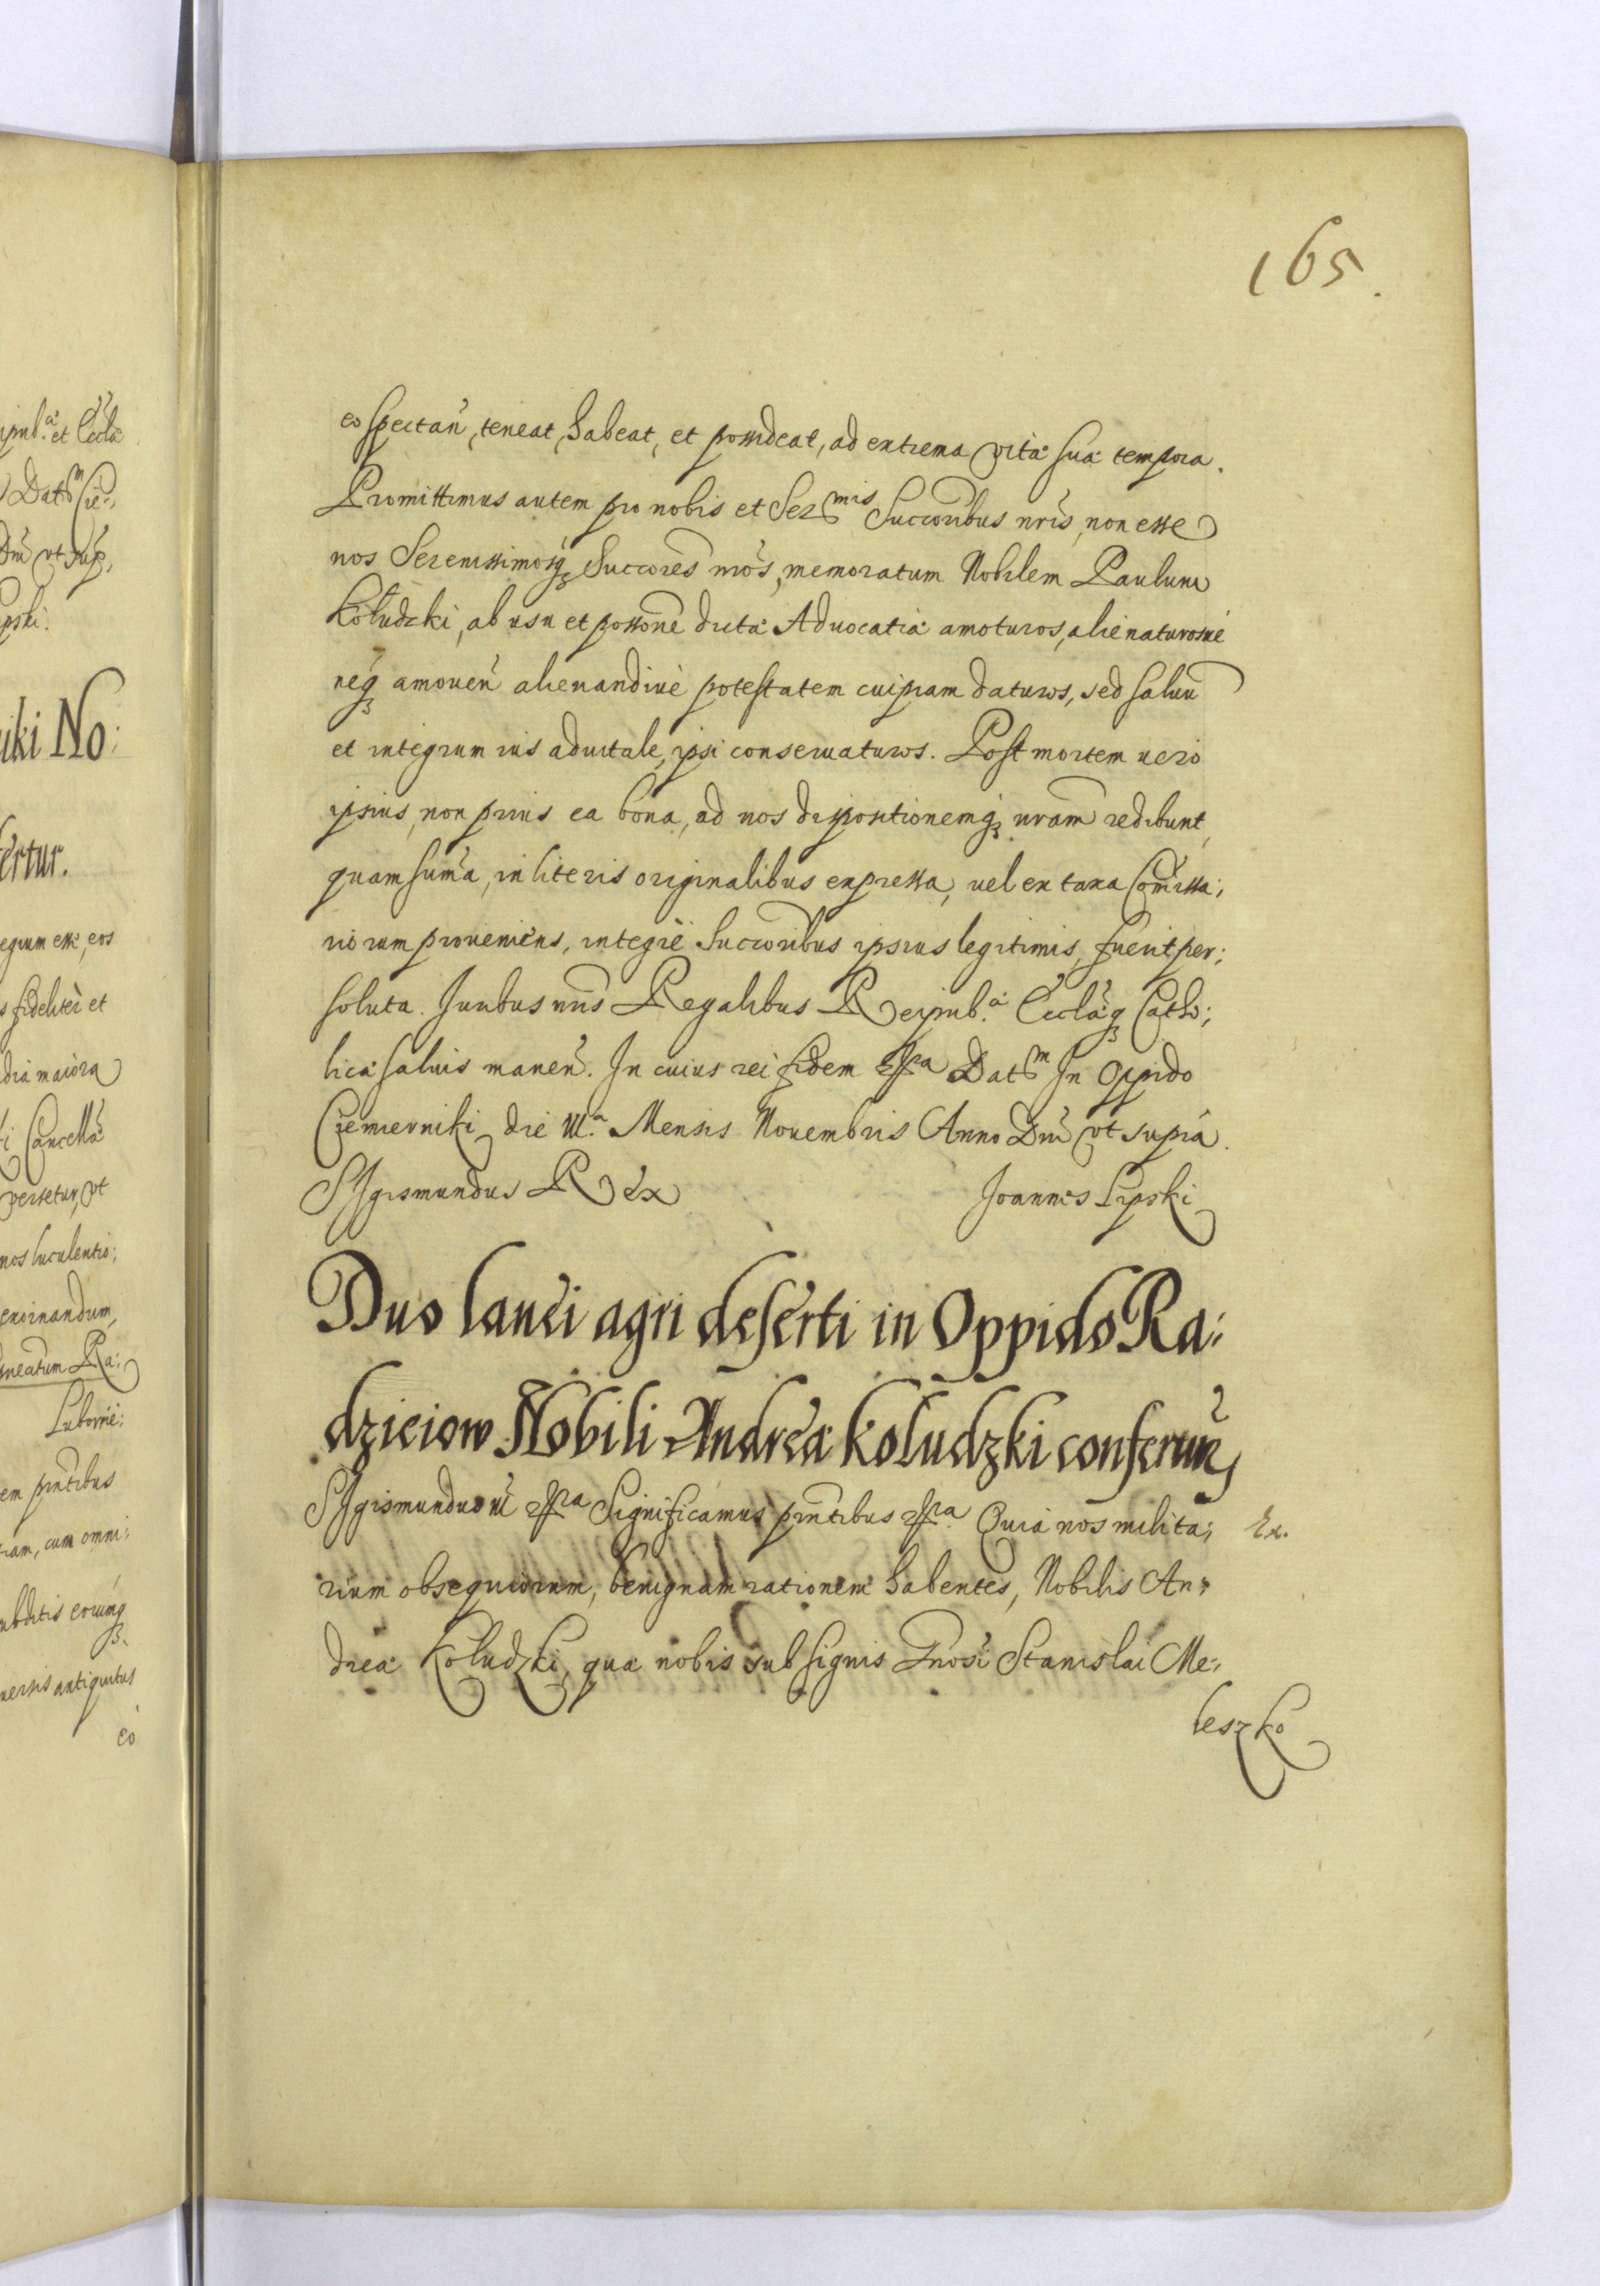 165.
eo spectan̄, teneat, habeat, et possideat, ad extrema vitæ suæ tempora.
Promittimus autem pro nobis et Ser^mis Successoribus nr̄is, non esse
nos Serenissimosq3 Successores nr̄os, memoratum Nobilem Paulum
Kołudzki, ab usu et possne dictæ Aduocatiæ amoturos, alienaturosue
neq3 amouen̄ alienandiue potestatem cuipiam daturos, sed saluū
et integrum ius aduitale, ipsi conseruaturos. Post mortem uero
ipsius, non prius ea bona, ad nos dispositionemq3 nram̄ redibunt,
quam sum̄a, in literis originalibus expressa, uel ex taxa Com̄issa:
riorum proueniens, integre Successoribus ipsius legitimis, fuerit per:
soluta. Juribus nr̄is Regalibus Reipub.æ Ecclæq3 Catho:
licæ saluis manen̄. In cuius rei fidem etc. Dat^m In Oppido
Czemierniki die VI.a Mensis Nouembris Anno Dnī vt supra.
SIgismundus Rex Joannes Lipski
Duo lanei agri deserti in Oppido Ra:
dzieiow Nobili Andreæ Kołudzki conferun̄,
SIgismundus III etc. Significamus prn̄tibus etc. Quia nos milita: Ex.
rium obsequiorum, benignam rationem habentes, Nobilis An:
dreæ Kołudzki, quæ nobis sub signis Gnosi Stanislai Me:
leszko
ipub.æ et Eccłæ
Dat^m Cze:
Dnī vt sup,
ipski.
iki No:
fertur.
egium esse, eos
s fideliter et
dia maiora
i Cancell
versetur, vt
nos luculentio:
exornandum,
Ra:
Lubomie:
em prn̄tibus
iam, cum omni:
ubditis eorumq3
uersis antiquitus
eo